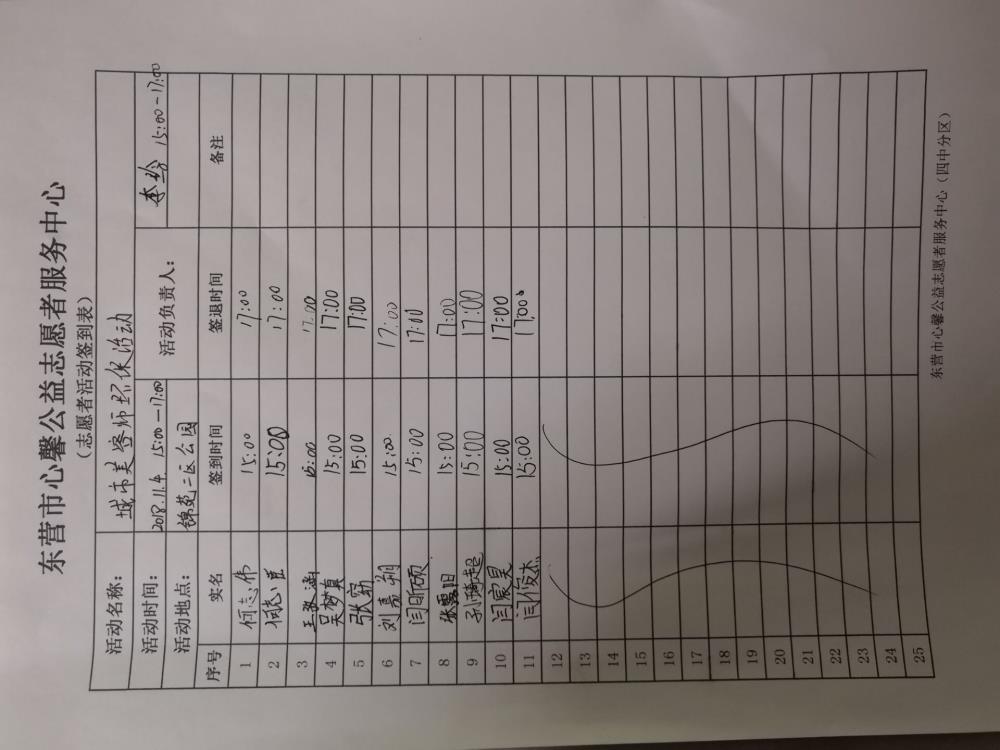 东营市心馨公益志愿者服务中心
（志愿者活动签到表）
活动名称： 城市美容师环保活动
活动时间： 2018.11.4 15:00-17:00 活动负责人： 15:00-17:00
活动地点： 锦苑二区公园
序号 实名 签到时间 签退时间 备注
1 何志伟 15:00 17:00
2 15:00 17:00
3 15:00 17:00
4 吴梦真 15:00 17:00
5 15:00 17:00
6 刘嘉翔 15:00 17:00
7 闫昕硕 15:00 17:00
8 15:00 17:00
9 15:00 17:00
10 闫宸昊 15:00 17:00
11 闫俊杰 15:00 17:00
12
13
14
15
16
17
18
19
20
21
22
23
24
25
东营市心馨公益志愿者服务中心（四中分区）